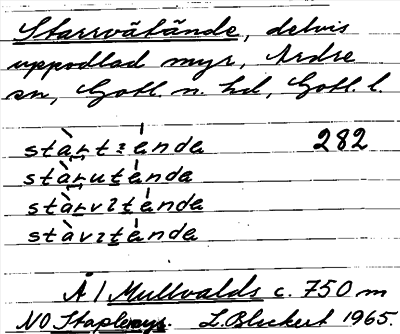 Starrvätände, delvis
uppodlad myr, Ardre
sn, Gotl. n. hd, Gotl. l.
stàrtɛánda 282
stàrutánda
stàrvɛtánda
stàvɛtánda
Å / Mullvalds c. 750 m
NO Staplemyr. L. Bluckert 1965.